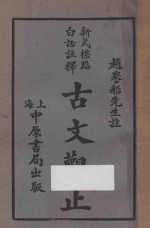 趙麥船先生註
新式標點
白話註釋
古文觀止
上海
中原書局出版